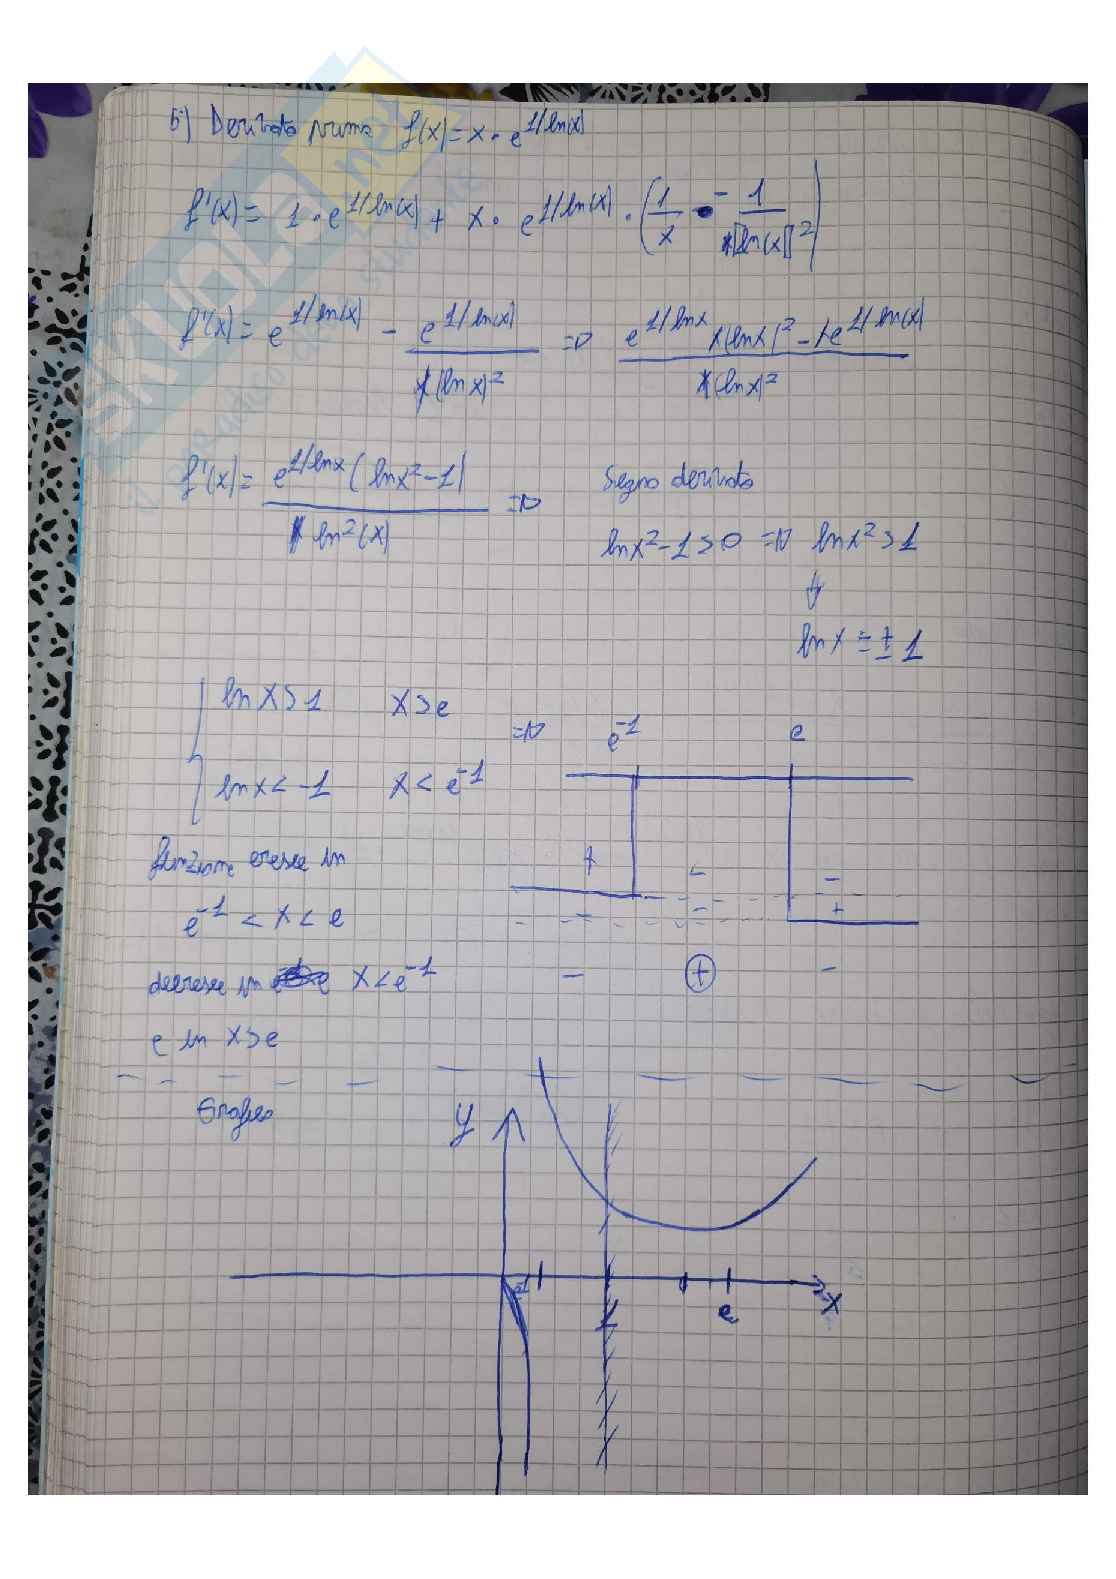 5) Derivata prima f(x)= x · e^1/ln(x)
f'(x)= 1 · e^1/ln(x) + x · e^1/ln(x) · (1/x · - 1/[ln(x)]^2)
f'(x)= e^1/ln(x) - e^1/ln(x) / (ln x)^2 => e^1/ln x x(ln x)^2 - x e^1/ln(x) / x(ln x)^2
f'(x)= e^1/ln x (ln x^2 - 1) / ln^2(x) =>
Segno derivata
ln x^2 - 1 > 0 => ln x^2 > 1
ln x = ± 1
ln x > 1 x > e
=> e^-1 e
ln x < -1 x < e^-1
funzione cresce in
e^-1 < x < e
+ - -
- - +
- + -
decresce in x < e^-1
e in x > e
Grafico
y
e^-1
1
e
x
SKUOLA.net